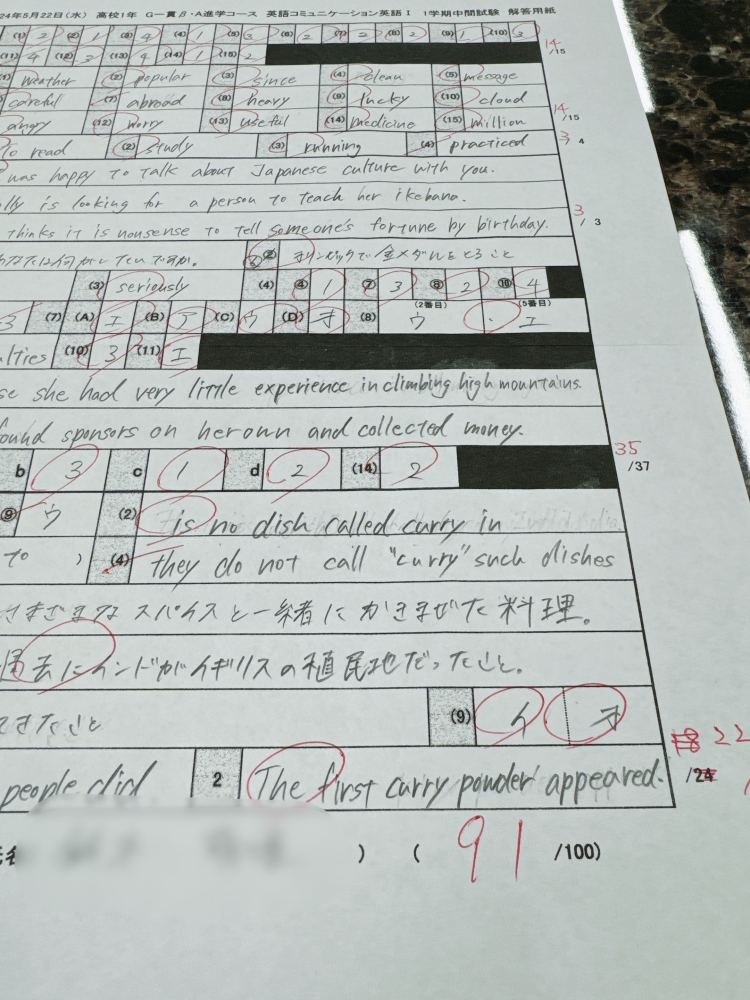 24年5月22日(水) 高校1年 G一貫β・A進学コース 英語コミュニケーション英語Ⅰ 1学期中間試験 解答用紙
(1) 2 (2) 1 (3) 4 (4) 1 (5) 3 (6) 2 (7) 2 (8) 2 (9) 1 (10) 3
(11) 4 (12) 2 (13) 4 (14) 1 (15) 2 14 /15
(1) weather (2) popular (3) since (4) clean (5) message
careful (7) abroad (8) heavy (9) lucky (10) cloud
angry (12) worry (13) useful (14) medicine (15) million 14 /15
to read (2) study (3) running (4) practiced 3 4
was happy to talk about Japanese culture with you.
lly is looking for a person to teach her ikebana.
thinks it is nonsense to tell someone's fortune by birthday. 3 / 3
あなたは何がしたいですか。 ② オリンピックで金メダルをとること
(3) seriously (4) ④ 1 ⑦ 3 2 ⑩ 4
3 (7) (A) エ (B) ア (C) ウ (D) オ (8) (2番目) ウ ・ (5番目) エ
lties (10) 3 (11) エ
se she had very little experience in climbing high mountains.
found sponsors on her own and collected money.
b 3 c 1 d 2 (14) 2 35 /37
⑨ ウ (2) is no dish called curry in
to ) (4) they do not call "curry" such dishes
さまざまなスパイスと一緒にかきまぜた料理。
過去にインドがイギリスの植民地だったこと。
できたこと (9) イ オ
people did 2 The first curry powder appeared. 22 /24
) ( 91 /100)